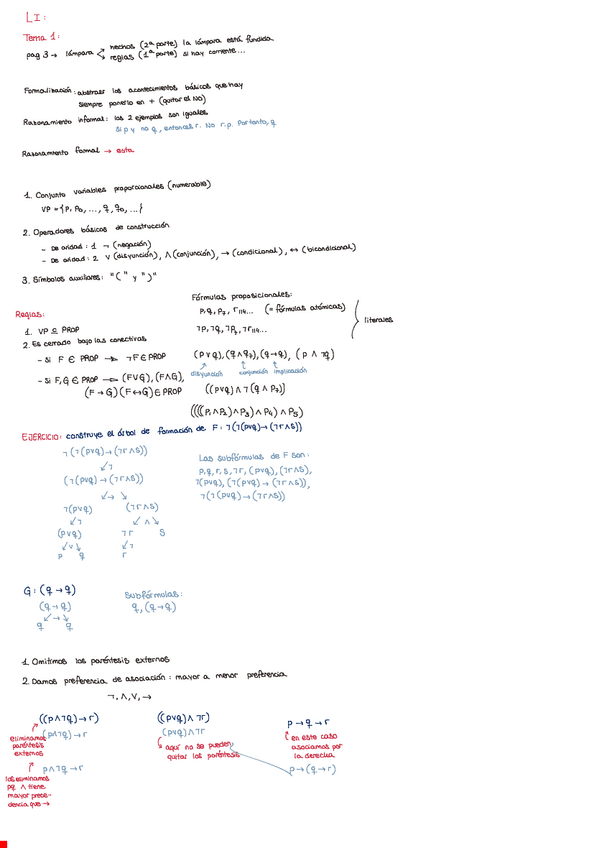 LI:
Tema 1:
pag 3 → lámpara < hechos (2ª parte) la lámpara está fundida
reglas (1ª parte) si hay corriente...
Formalización: abstraer los acontecimientos básicos que hay
siempre ponerlo en + (quitar el NO)
Razonamiento informal: los 2 ejemplos son iguales
Si p y no q, entonces r. No r. p. Por tanto, q
Razonamiento formal → esta
1. Conjunto variables proporcionales (numerable)
VP = {P, P₀, ..., q, q₀, ...}
2. Operadores básicos de construcción
- De aridad: 1 ¬ (negación)
- De aridad: 2 ∨ (disyunción), ∧ (conjunción), → (condicional), ↔ (bicondicional)
3. Símbolos auxiliares: "(" y ")"
Fórmulas proposicionales:
Reglas:
P, q, P₇, r₁₁₄... (= fórmulas atómicas)
literales
1. VP ⊆ PROP
¬P, ¬q, ¬P₇, ¬r₁₁₄...
2. Es cerrado bajo las conectivas
- Si F ∈ PROP → ¬F ∈ PROP
(p∨q), (q∧q₇), (q→q), (p∧¬q)
disyunción conjunción implicación
- Si F, G ∈ PROP → (F∨G), (F∧G),
(F→G) (F↔G) ∈ PROP
((p∨q)∧¬(q∧p₇))
((((P₁∧P₂)∧P₃)∧P₄)∧P₅)
EJERCICIO: construye el árbol de formación de F: ¬(¬(p∨q)→(¬r∧s))
¬(¬(p∨q)→(¬r∧s))
↙¬
(¬(p∨q)→(¬r∧s))
↙→↘
¬(p∨q) (¬r∧s)
↙¬ ↙∧↘
(p∨q) ¬r s
↙∨↘ ↙¬
p q r
Las subfórmulas de F son:
p, q, r, s, ¬r, (p∨q), (¬r∧s),
¬(p∨q), (¬(p∨q)→(¬r∧s)),
¬(¬(p∨q)→(¬r∧s))
G: (q→q)
(q→q)
↙→↘
q q
Subfórmulas:
q, (q→q)
1. Omitimos los paréntesis externos
2. Damos preferencia de asociación: mayor a menor preferencia
¬, ∧, ∨, →
((p∧¬q)→r)
(p∧¬q)→r
eliminamos
paréntesis
externos
p∧¬q→r
los eliminamos
pq ∧ tiene
mayor prece-
dencia que →
((p∨q)∧¬r)
(p∨q)∧¬r
aquí no se pueden
quitar los paréntesis
p→q→r
en este caso
asociamos por
la derecha
p→(q→r)